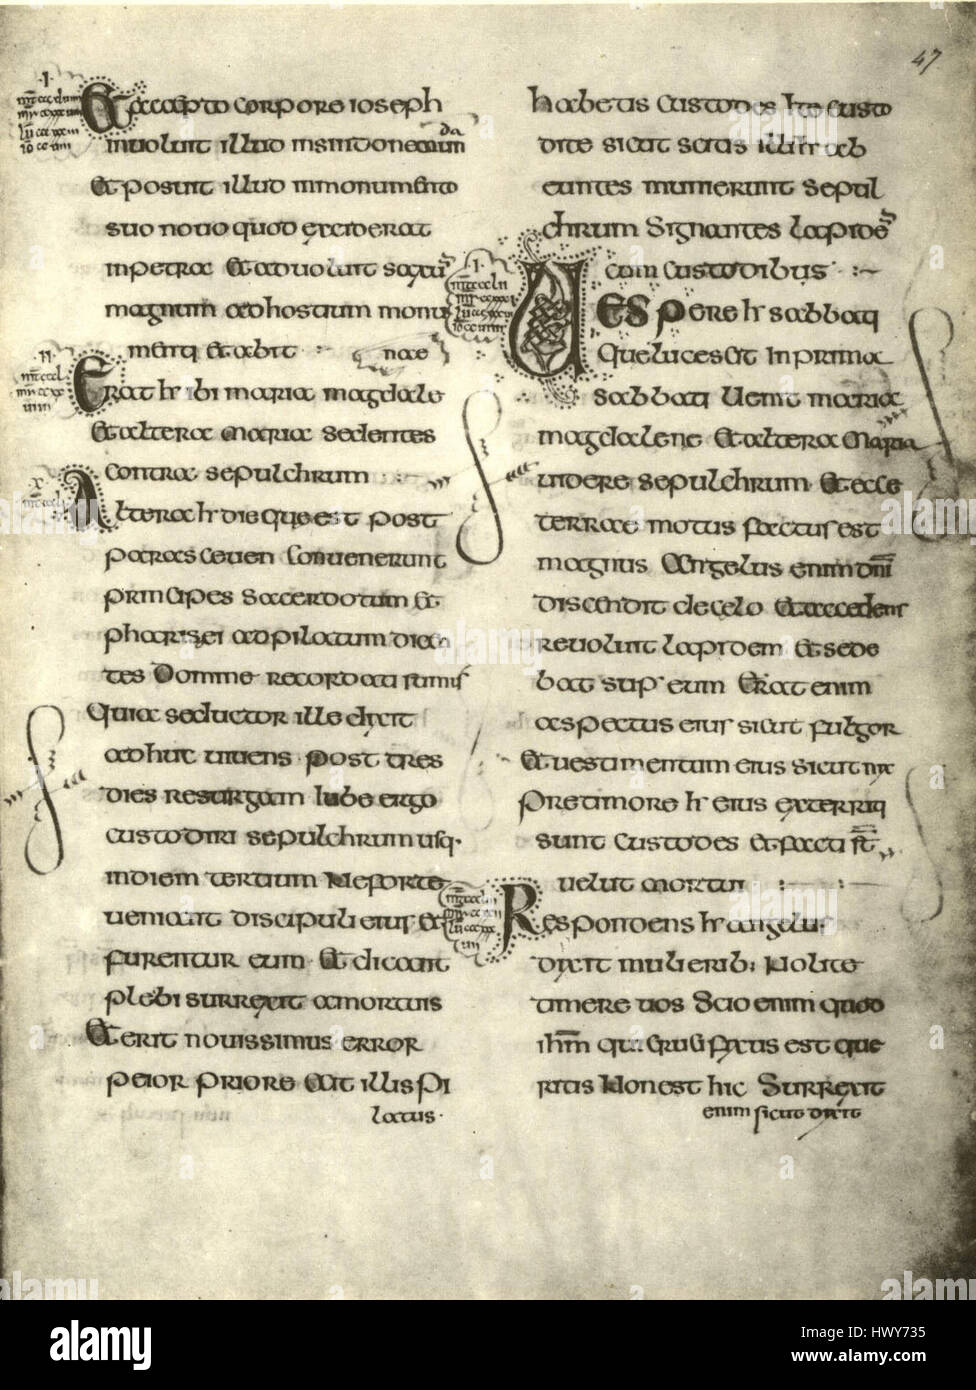 47
Et accepto corpore ioseph
inuoluit illud in sindone munda
Et posuit illud in monumento
suo nouo quod exciderat
in petra Et aduoluit saxum
magnum ad hostium monu
menti et abiit
Erat hr ibi maria magdale
nae
Et altera maria sedentes
contra sepulchrum
Altera hr die que est post
parasceuen Conuenerunt
principes sacerdotum et
pharisei ad pilatum dicen
tes Domine recordati sumus
Quia seductor ille dixit
adhuc uiuens post tres
dies resurgam Iube ergo
custodiri sepulchrum usq·
in diem tertium Ne forte
ueniant discipuli eius et
furentur eum Et dicant
plebi surrexit a mortuis
Et erit nouissimus error
peior priore Ait illis pi
latus·
habetis custodes Ite custo
dite sicut scitis illi hr ab
euntes munierunt sepul
chrum Signantes lapidem
cum custodibus
Uespere hr sabbati
que lucescit In prima
sabbati Uenit maria
magdalene Et altera maria
uidere sepulchrum Et ecce
terrae motus factus est
magnus Angelus enim dni
discendit de celo Et accedens
reuoluit lapidem Et sede
bat sup' eum Erat enim
aspectus eius sicut fulgor
Et uestimentum eius sicut nix
Pre timore hr eius exterriti
sunt Custodes Et facti st
uelut mortui
Respondens hr angelus
dixit mulierib; Nolite
timere uos Scio enim quod
ihm qui crucifixus est que
ritis Non est hic Surrexit
enim sicut dixit
alamy
Image ID: HWY735
www.alamy.com